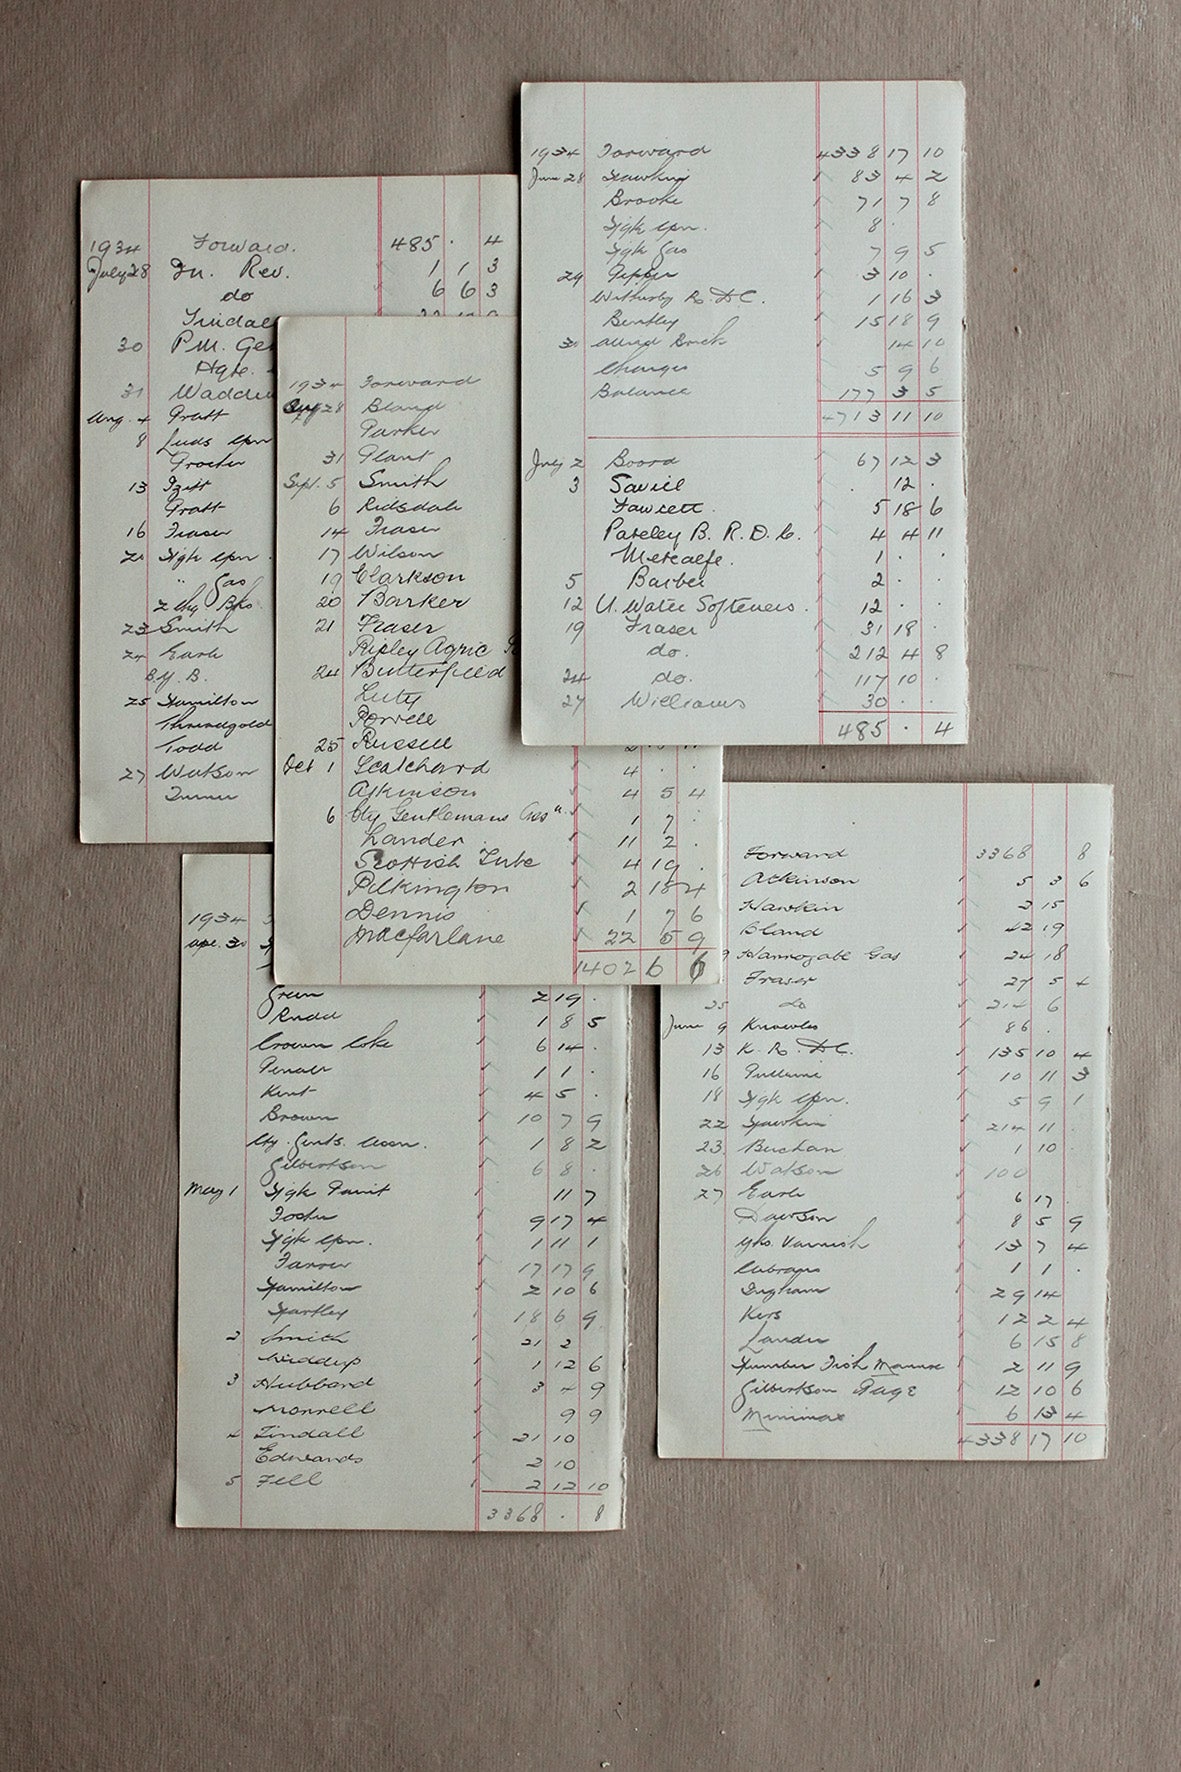 1934 Forward 4338 17 10
June 28 Hawkin 83 4 2
Brooke 71 7 8
Hgk Cpn. 8 .
Hgk Gas 7 9 5
29 Pepper 3 10 .
Wetherby R. D.C. 1 16 3
Bentley 15 18 9
30 Allied Brick 14 10
Charges 5 9 6
Balance 177 3 5
4713 11 10
July 2 Board 67 12 3
3 Savill 12 .
Fawcett. 5 18 6
Pateley B. R.D.C. 4 4 11
Metcalfe. 1 . .
5 Barber 2 . .
12 U. Water Softeners. 12 . .
19 Fraser 31 18 .
do. 212 4 8
24 do. 117 10 .
27 Williams 30 . .
485 . 4
1934 Forward. 485 . 4
July 28 In. Rev. 1 1 3
do 6 6 3
Tindal
30 P.M. Ge
Hgte.
31 Waddi
Aug. 4 Pratt
8 Leeds Cpn
Procter
13 Izitt
Pratt
16 Fraser
21 Hgk Cpn
" Gas
Bks
23 Smith
24 Earle
B.Y.B.
25 Hamilton
Threadgold
Todd
27 Watson
Turner
1934 Forward
Aug 28 Bland
Parker
31 Plant
Sept. 5 Smith
6 Ridsdale
14 Fraser
17 Wilson
19 Clarkson
20 Barker
21 Fraser
Ripley Agric
24 Butterfield
Luty
Powell
25 Russell
Oct 1 Scatchard 4 . .
Atkinson 4 5 4
6 Cty Gentlemans Ass" 1 7 .
Lander 11 2 .
Scottish Tube 4 19 .
Pilkington 2 18 4
Dennis 1 7 6
Macfarlane 22 5 9
1402 6 6
1934
Apr. 30
Green 2 19 .
Rudd 1 8 5
Crown Coke 6 14 .
1 1 .
Kent 4 5 .
Brown 10 7 9
Cty. Gents. Assn. 1 8 2
Gilbertson 6 8 .
May 1 Hgk Paint 11 7
Foster 9 17 4
Hgk Cpn. 1 11 1
Farrer 17 17 9
Hamilton 2 10 6
Hartley 18 6 9
2 Smith 21 2
Widdup 1 12 6
3 Hubbard 3 4 9
Morrell 9 9
4 Tindall 21 10
Edwards 2 10
5 Fell 2 12 10
3368 . 8
Forward 3368 8
Atkinson 5 3 6
Hawkin 3 15
Bland 42 19
9 Harrogate Gas 24 18
Fraser 27 5 4
25 do 214 6
June 9 Knowles 86 .
13 K. R. D.C. 135 10 4
16 Pullaine 10 11 3
18 Hgk Cpn. 5 9 1
22 Hawkin 214 11 .
23 Buchan 1 10 .
26 Watson 100
27 Earle 6 17 .
Dawson 8 5 9
Yks. Varnish 13 7 4
1 1 .
Ingham 29 14
Kers 12 2 4
Lander 6 15 8
Humber Fish Manure 2 11 9
Gilbertson Page 12 10 6
Minimax 6 13 4
4338 17 10